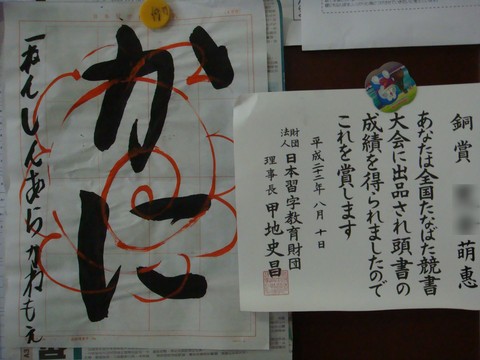 かに
一ねんしんあらかわもえ
銅賞
萌恵
あなたは全国たなばた競書
大会に出品され頭書の
成績を得られましたので
これを賞します
平成二十二年八月十日
財団法人 日本習字教育財団
理事長 甲地史昌